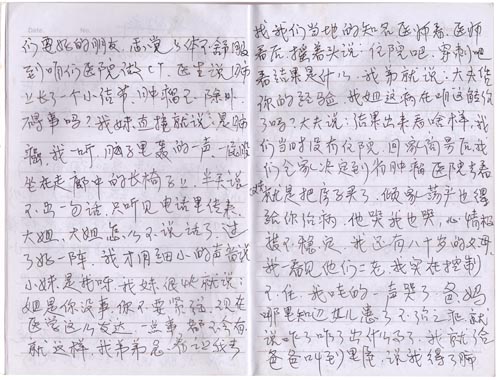 Date.
No.
们更好的朋友,感觉身体不舒服
到咱们医院做CT,医生说:肺
上长了一个小结节,肿瘤不除外
碍事吗?我妹直接就说:是肺
癌,我一听,脑子里轰的一声,一屁股
坐在走廊中的长椅子上,半天说
不出一句话,只听见电话里传来,
大姐,大姐怎么不说话了,过
了好一阵,我才用细小的声音说
小妹是我呀,我妹很能就说:
姐是你没事,你不要紧张,现在
医学这么发达,一些事都不会有,
就这样,我弟弟急
找我们当地的知名医师看,医师
看后摇着头说:住院吧,穿刺吧
看结果是什么,我弟就说:大夫你
你的经验,我姐这病在咱这能治
了吗?大夫说:结果出来看啥样,我
们当时没有住院,回家商号后我
们全家决定到肿瘤医院去看
就是把房子买了,倾家荡产也得
给你治病,他哭我也哭,心情极
极不稳定,我还有八十岁的父母
我看见他们二老,我实在控制
不住,我哇的一声哭了,爸妈
哪里知道女儿患了不治之症就
说咋了咋了出什么事了,我就给
爸爸叫到里屋,说我得了肺